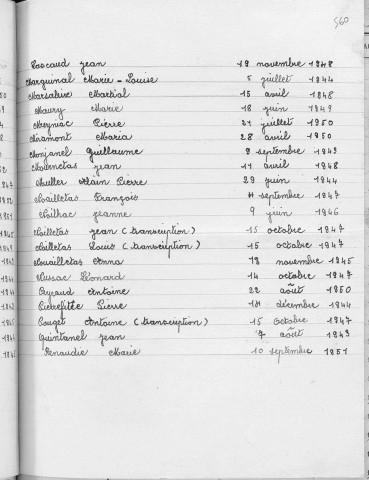 560
Lascaud Jean 19 novembre 1948
Marguinal Marie-Louise 5 juillet 1944
Marsaleix Martial 15 avril 1948
Maury Marie 18 juin 1949
Meyniac Pierre 21 juillet 1950
Miramont Maria 28 avril 1950
Monjanel Guillaume 9 septembre 1949
Mournetas Jean 11 avril 1948
Muller Alain Pierre 29 juin 1944
Noailletas François 11 septembre 1947
Noilhac Jeanne 9 juin 1946
Noilletas Jean (transcription) 15 octobre 1947
Noilletas Louis (transcription) 15 octobre 1947
Nouailletas Anna 18 novembre 1945
Nussac Léonard 14 octobre 1947
Peyraud Antoine 22 août 1950
Pierrefitte Pierre 18 décembre 1944
Pouget Antoine (transcription) 15 octobre 1947
Quintanel Jean 7 août 1949
Renaudie Marie 10 septembre 1951